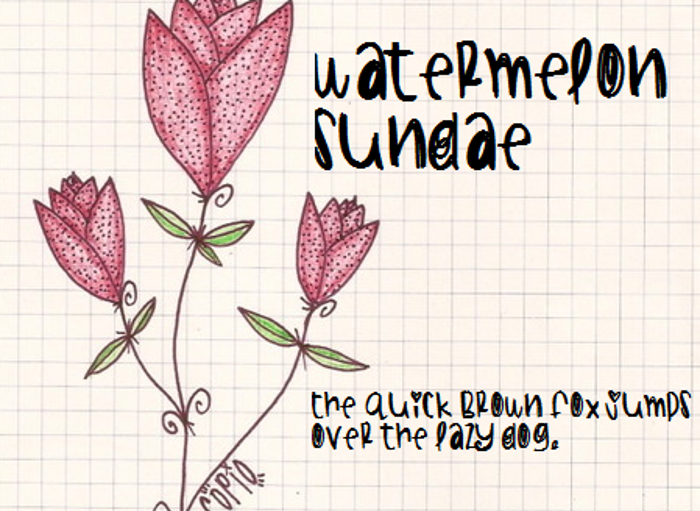 watermelon
sundae
the quick brown fox jumps
over the lazy dog.